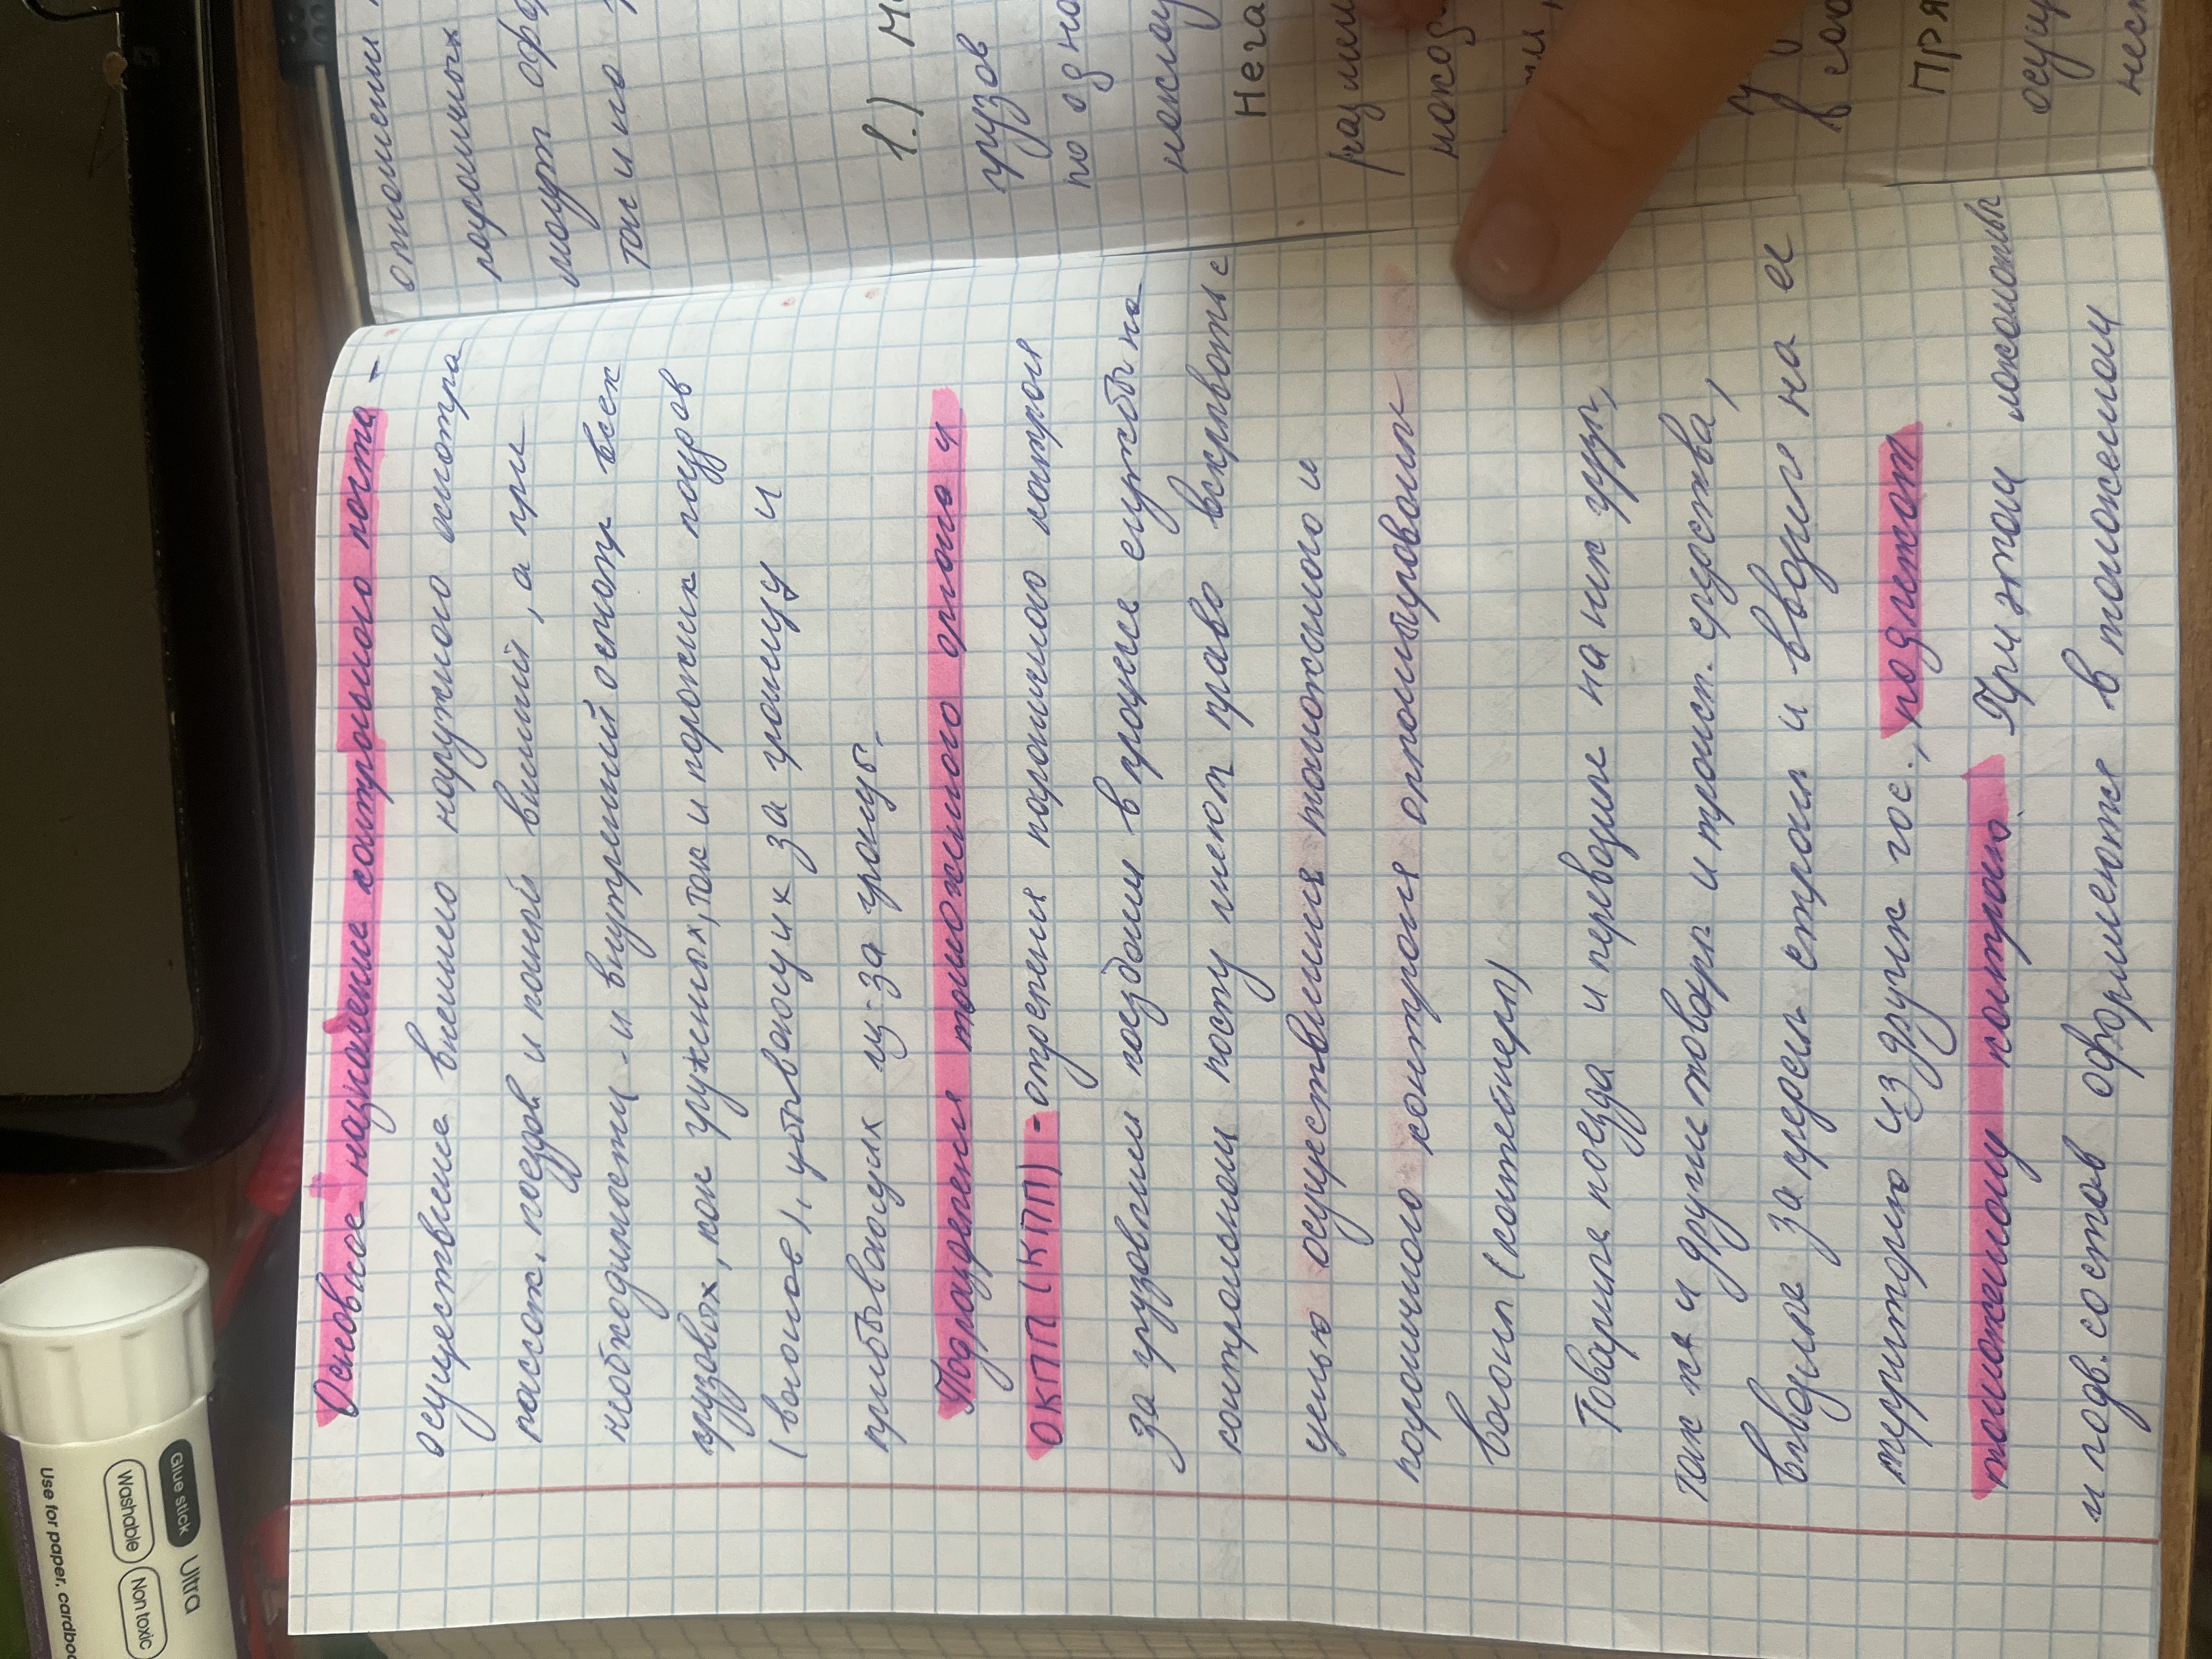 Основное назначение контрольного поста -
осуществление внешнего наружного осмотра
пассаж. поездов и полный внешний, а при
необходимости - и внутренний осмотр всех
грузовых, как груженых, так и порожних поездов
(вагонов), убывающих за границу и
прибывающих из-за границ.
Подразделения таможенного органа и
ОКПП (КПП) - отделения пограничного контроля
за грузовыми поездами в процессе службы на
контрольном посту имеют право вскрывать с
целью осуществления таможенного и
пограничного контроля опломбированные
вагоны (контейнеры)
Товарные поезда и переводимые на них груз,
так же и другие товары и трансп. средства,
вывозимые за пределы страны и ввозимые на ее
территорию из других гос., подлежат
таможенному контролю. При этом локомотивы
и подв. состав оформляются в таможенном
отношении
порожних
могут офо
так и на
1.) М
грузов
по одно
Нега
разли
Пря
осущ